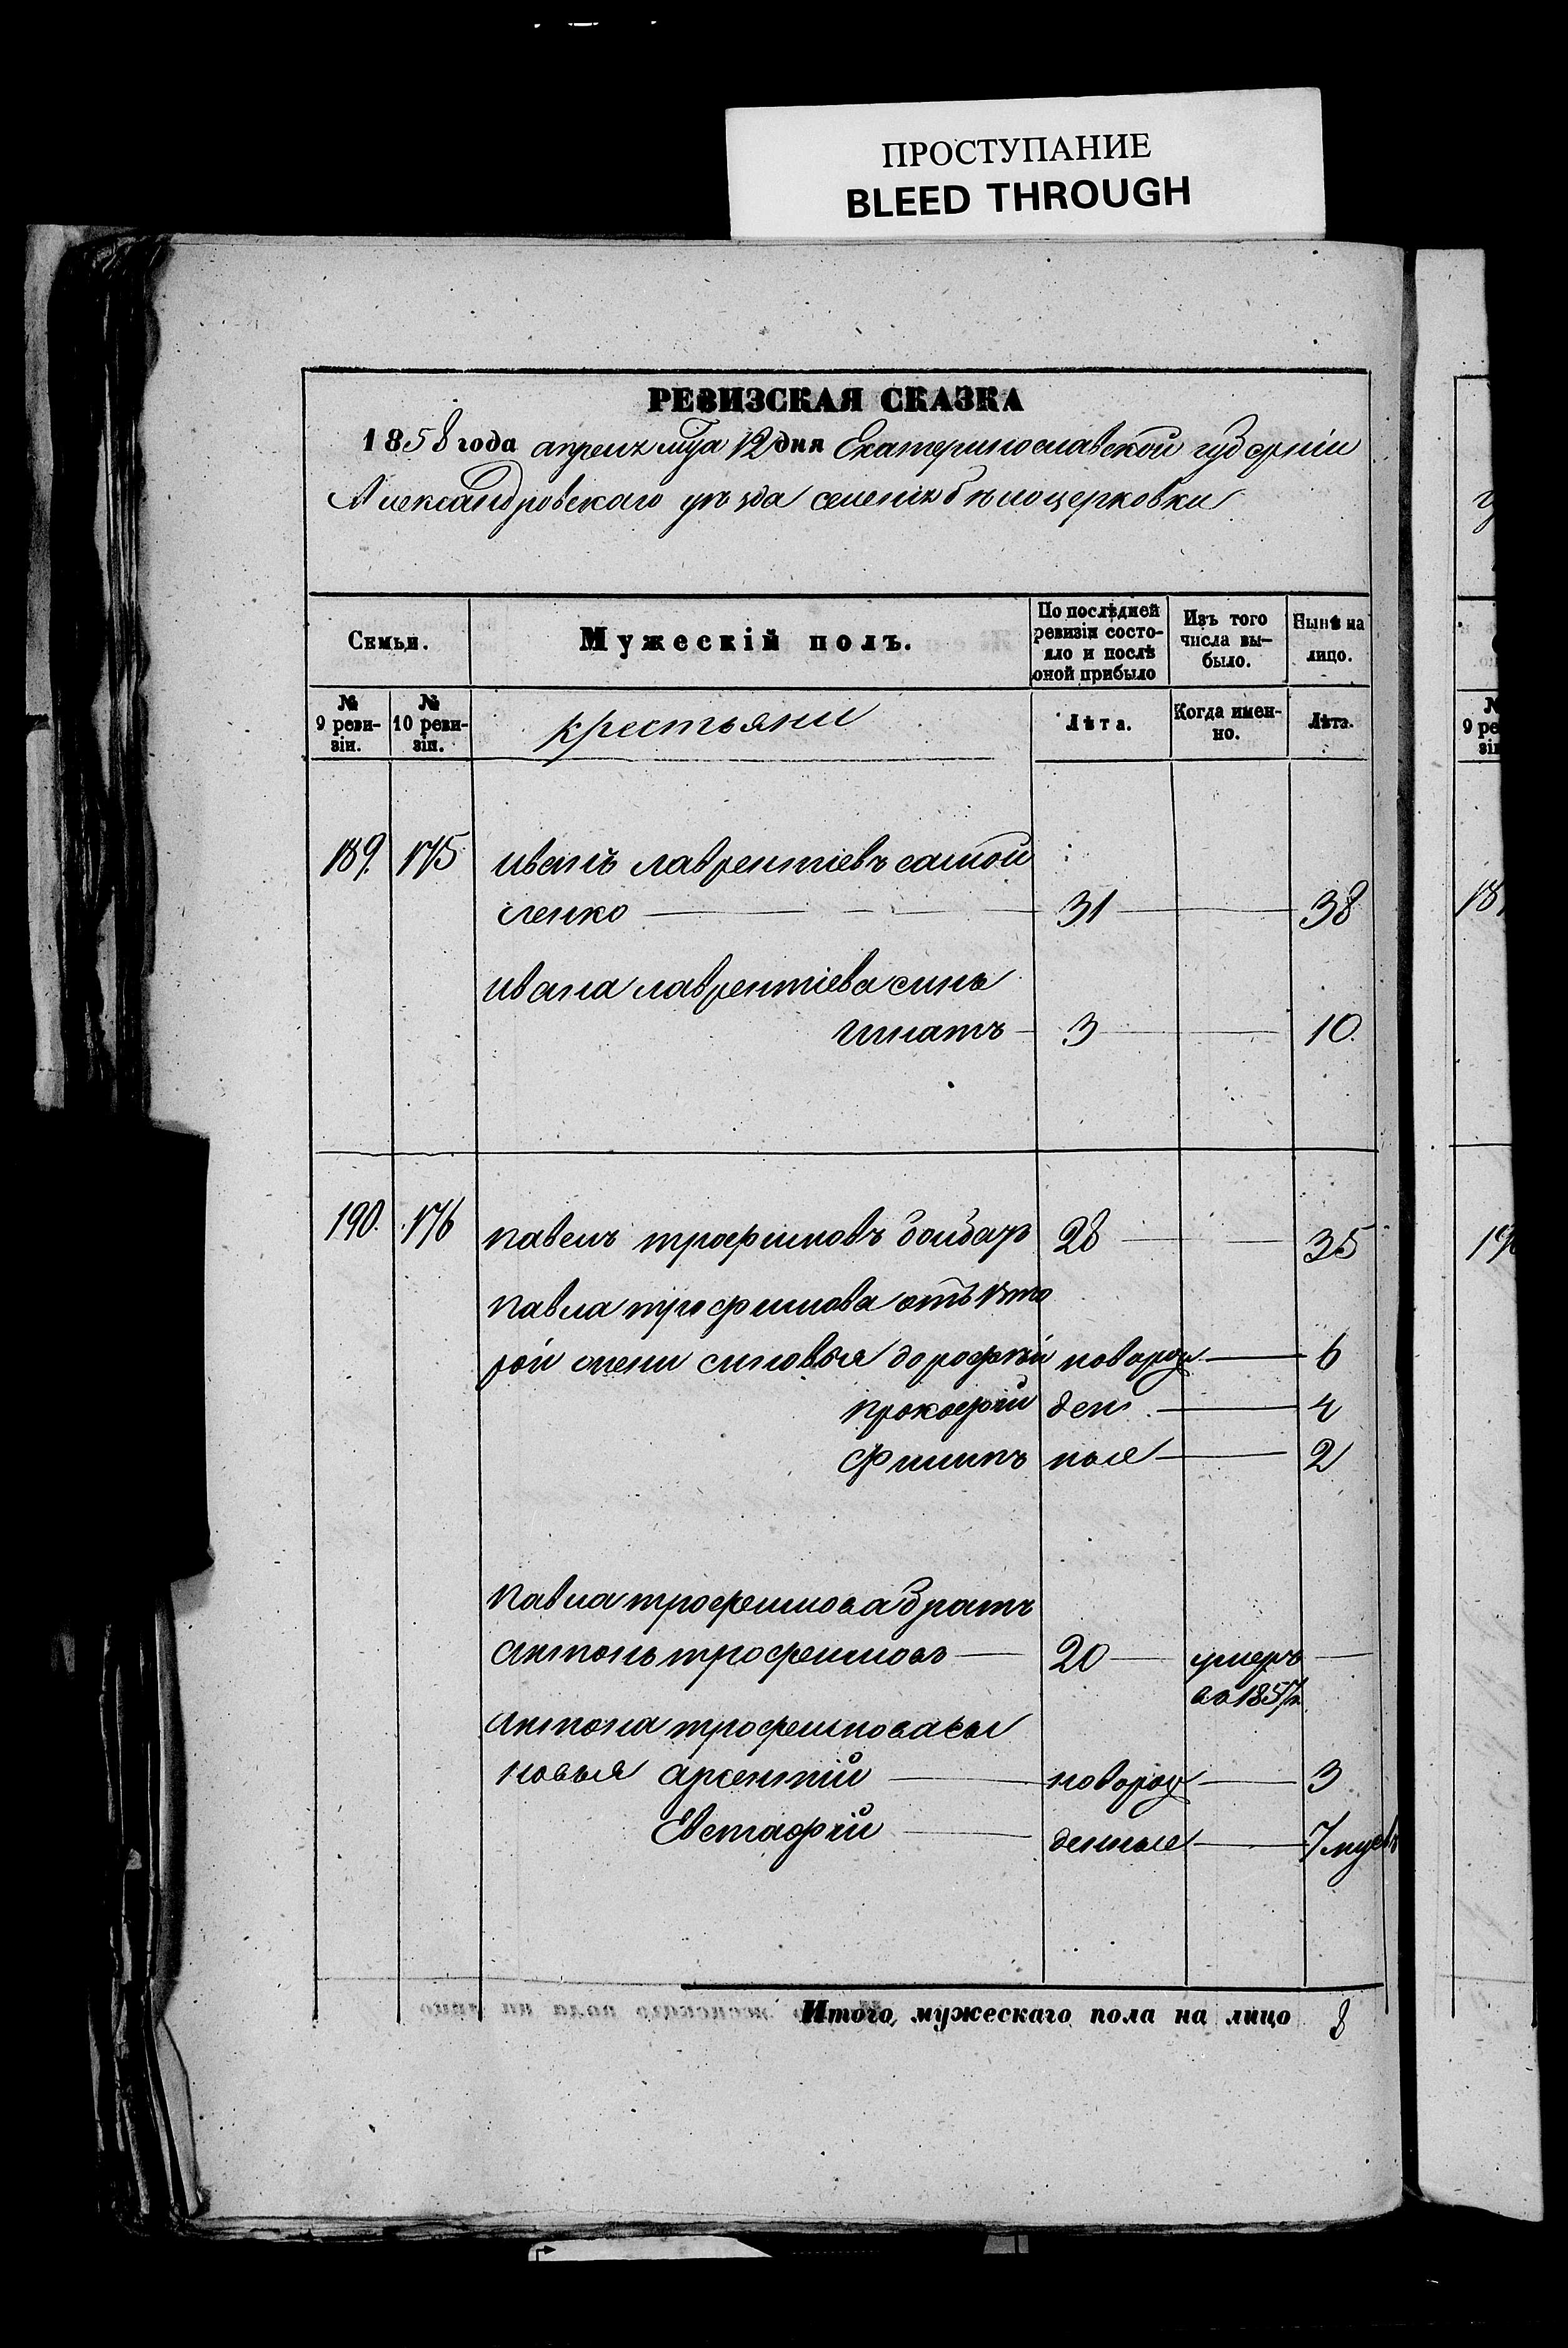 ПРОСТУПАНИЕ
BLEED THROUGH
РЕВИЗСКАЯ СКАЗКА
1858 года апреля мца 12 дня Екатеринославской губерніи
Александровскаго уѣзда селенія бѣлоцерковки
Семьи. Мужескій полъ. По послѣдней ревизіи состояло и послѣ оной прибыло Изъ того числа выбыло. Нынѣ на лицо.
№ 9 ревизіи. № 10 ревизіи. крестьяни Лѣта. Когда именно. Лѣта.
189. 175 иванъ лаврентіевъ самой
ленко 31 38
ивана лаврентіева синъ
игнатъ 3 10.
190. 176 павелъ трофимовъ 28 35
павла трофимова отъ вто
рой жени синовья дорофѣй новорож 6
прокофій ден 4
Филипъ ные 2
павла трофимова братъ
антонъ трофимовъ 20 умеръ
въ 1857г.
антона трофимова сы
новья арсентій новорож 3
Евстафій денные 7 мцевъ
Итого, мужескаго пола на лицо 8